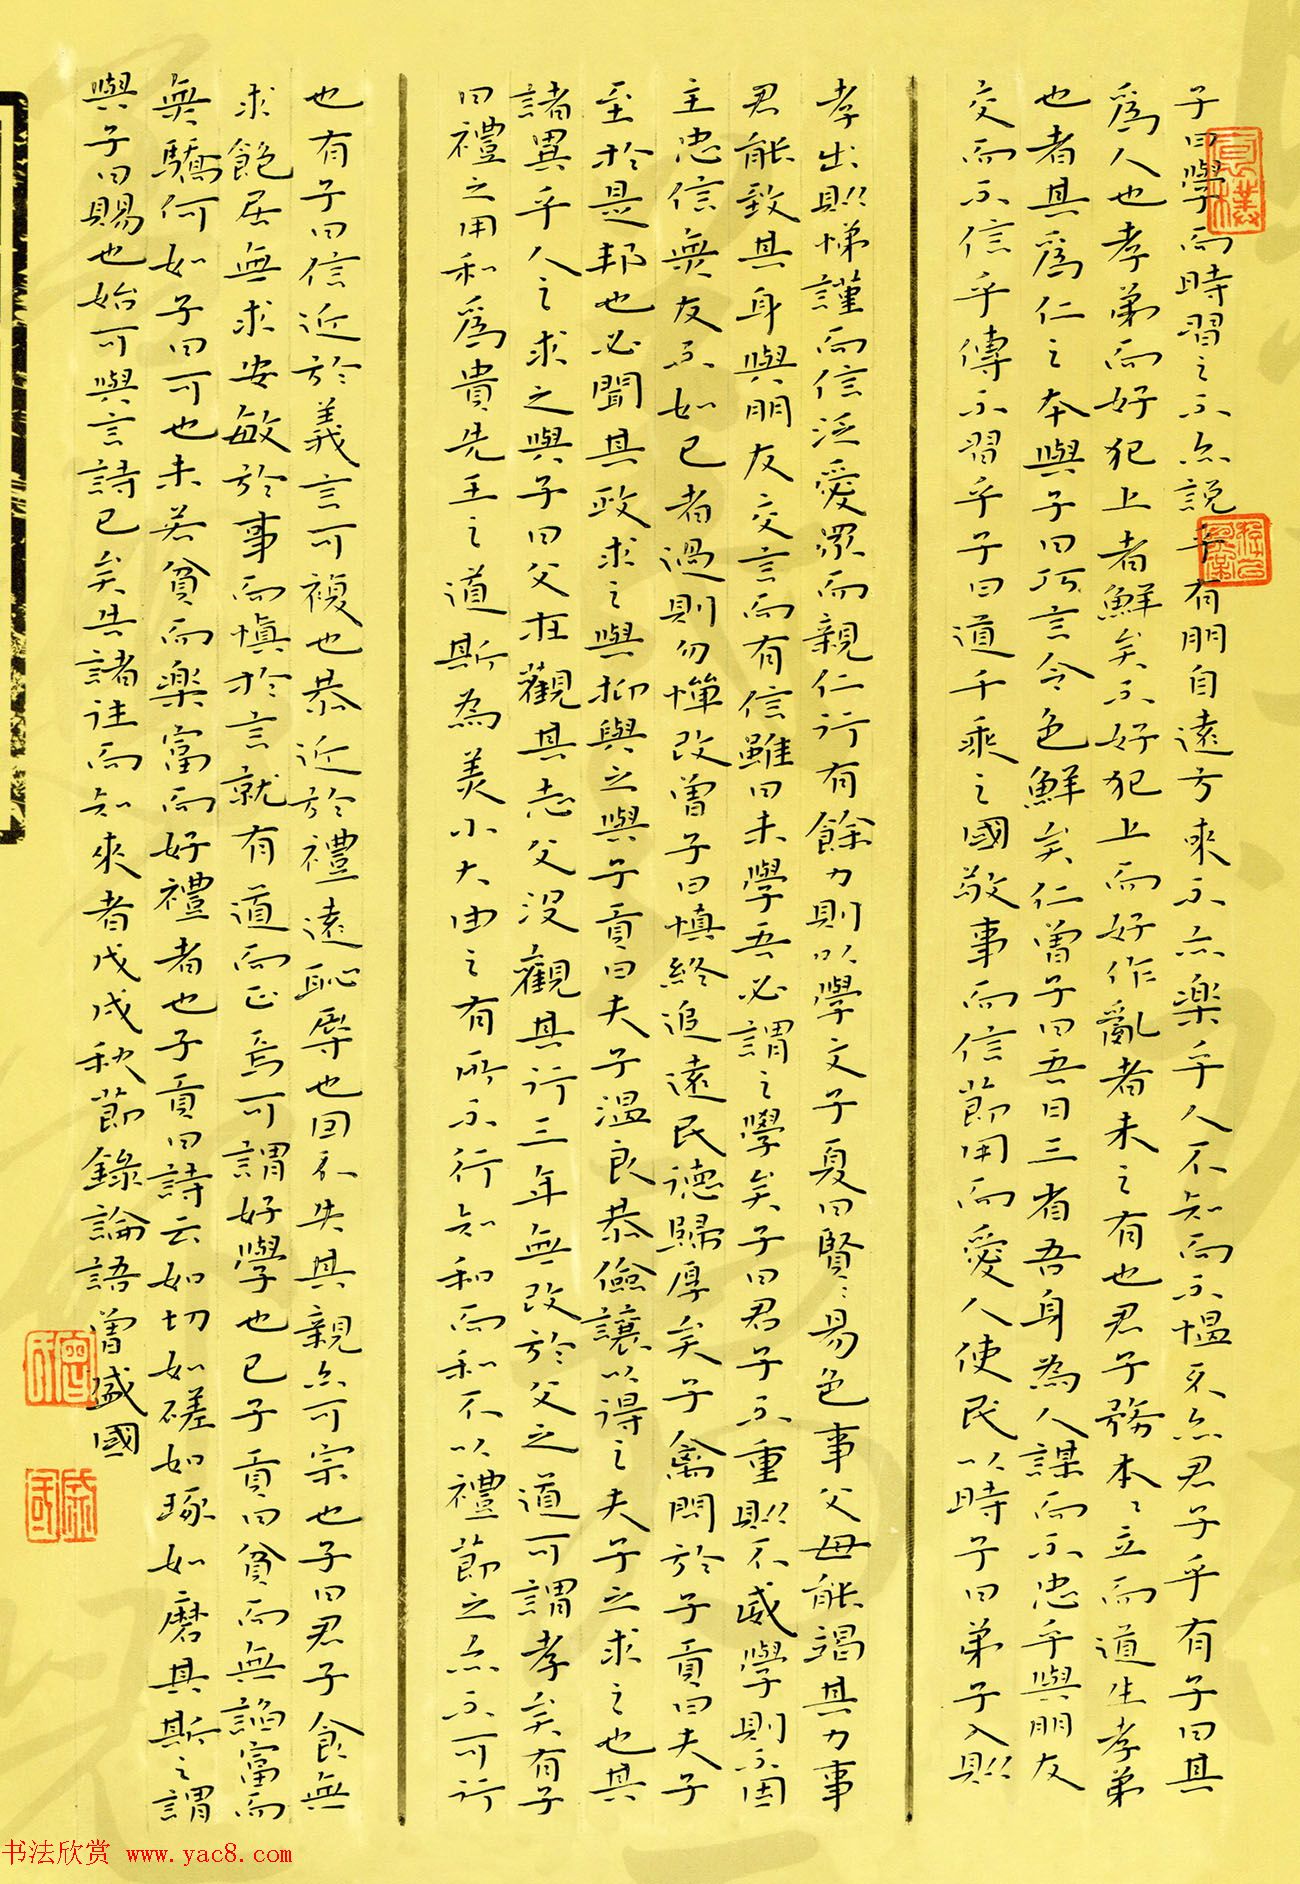 子曰學而時習之不亦説乎有朋自遠方來不亦樂乎人不知而不愠不亦君子乎有子曰其
爲人也孝弟而好犯上者鮮矣不好犯上而好作亂者未之有也君子務本〻立而道生孝弟
也者其爲仁之本與子曰巧言令色鮮矣仁曾子曰吾日三省吾身為人謀而不忠乎與朋友
交而不信乎傳不習乎子曰道千乘之國敬事而信節用而愛人使民以時子曰弟子入則
孝出則悌謹而信泛愛眾而親仁行有餘力則以學文子夏曰賢〻易色事父母能竭其力事
君能致其身與朋友交言而有信雖曰未學吾必謂之學矣子曰君子不重則不威學則不固
主忠信無友不如己者過則勿憚改曾子曰慎終追遠民德歸厚矣子禽問於子貢曰夫子
至於是邦也必聞其政求之與抑與之與子貢曰夫子温良恭儉讓以得之夫子之求之也其
諸異乎人之求之與子曰父在觀其志父没觀其行三年無改於父之道可謂孝矣有子
曰禮之用和爲貴先王之道斯為美小大由之有所不行知和而和不以禮節之亦不可行
也有子曰信近於義言可複也恭近於禮遠恥辱也因不失其親亦可宗也子曰君子食無
求飽居無求安敏於事而慎於言就有道而正焉可謂好學也已子貢曰貧而無諂富而
無驕何如子曰可也未若貧而樂富而好禮者也子貢曰詩云如切如磋如琢如磨其斯之謂
與子曰賜也始可與言詩已矣告諸往而知來者戊戌秋節錄論語曾盛國
曾印
盛國
书法欣赏 www.yac8.com